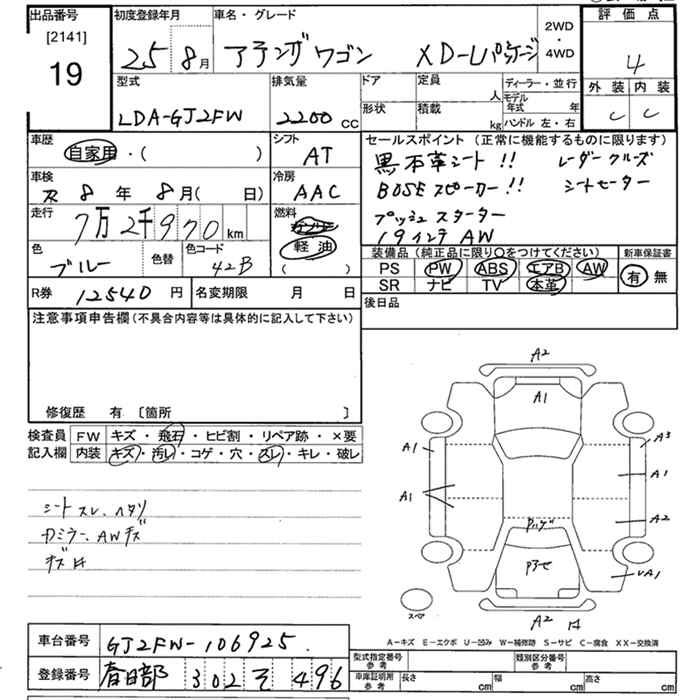 出品番号 初度登録年月 車名・グレード 2WD・4WD 評価点
[2141]
19 25 8月 アテンザワゴン XD-Lパッケージ 4
型式 排気量 ドア 定員 人 ディーラー・並行 外装 内装
LDA-GJ2FW 2200 CC 形状 積載 kg モデル年式 年 ハンドル 左・右 C C
車歴 自家用・( ) シフト AT
セールスポイント (正常に機能するものに限ります)
黒本革シート!! レーダークルーズ
BOSEスピーカー!! シートヒーター
プッシュスターター
19インチAW
車検 8年 8月( 日) 冷房 AAC
走行 7万2千970km 燃料 ガソリン
軽油
( )
色 ブルー 色替 色コード 42B
装備品 (純正品に限り○をつけてください) 新車保証書
PS PW ABS エアB AW 有 無
SR ナビ TV 本革
R券 12540 円 名変期限 月 日 後日品
注意事項申告欄(不具合内容等は具体的に記入して下さい)
修復歴 有 [箇所 ]
検査員 FW キズ・飛石・ヒビ割・リペア跡・×要
記入欄 内装 キズ・汚レ・コゲ・穴・スレ・キレ・破レ
シートスレ、ヘタリ
カミラー、AWキズ
A2
A1
A1 A3
A1
A1
A2
Pハゲ
UA1
スペア A2
A-キズ E-エクボ U-凹み W-補修跡 S-サビ C-腐食 XX-交換済
車台番号 GJ2FW-106925.
型式指定番号 参考 類別区分番号 参考
登録番号 春日部 302 そ 496
車庫証明用 参考 長さ cm 幅 cm 高さ cm